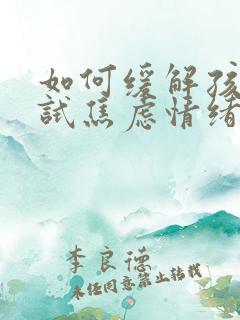 如何缓解孩
试焦虑情绪
李良德
未经同意禁止转载